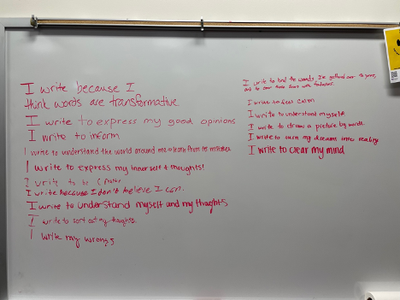 I write because I
think words are transformative
I write to express my good opinions
I write to inform
I write to understand the world around me
I write to express my inner self & thoughts!
I write to
I write because I don't believe I can.
I write to understand myself and my thoughts
I write to sort out my thoughts.
I write my wrongs
I write to find the words I've gathered over the years,
and to
I write to feel
I write to understand myself
I write to draw a picture
I write to turn my dreams into reality
I write to clear my mind